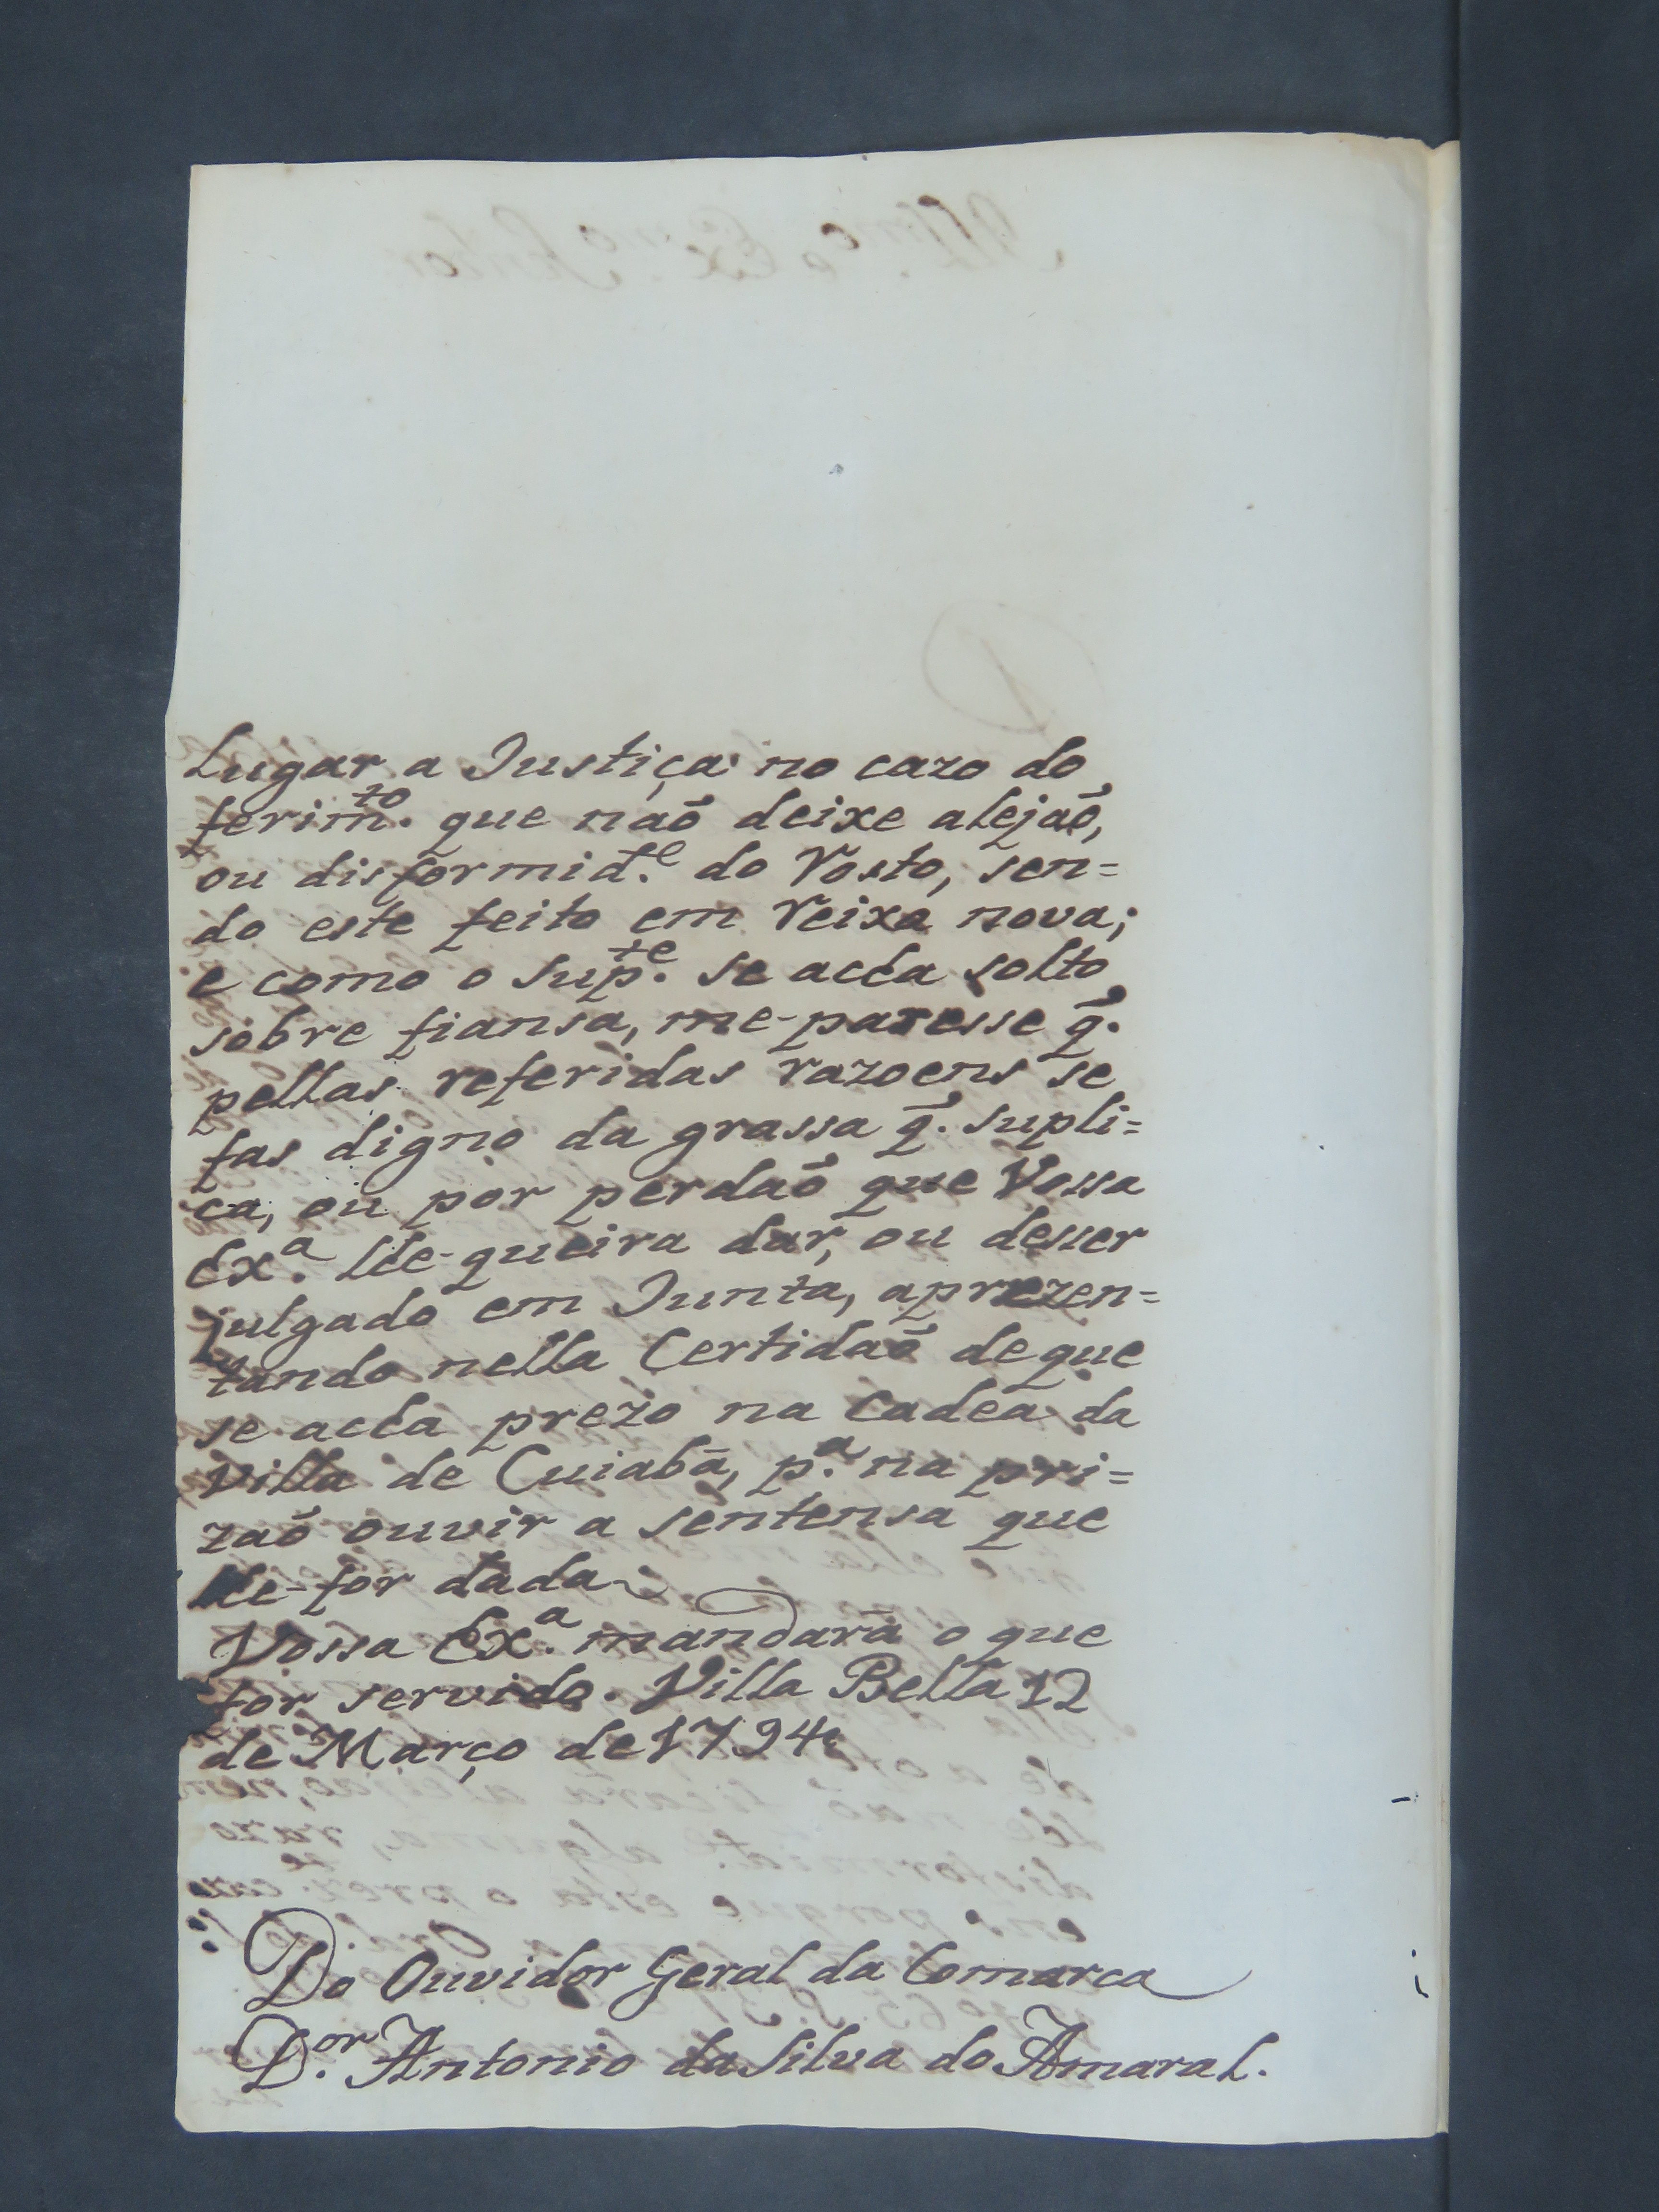 Lugar a Justiça no cazo do
ferim.to que naõ deixe alejaõ,
ou disformid.e do Rosto, sen=
do este feito em Reixa nova;
e como o Sup.te se acha solto
sobre fiansa, me-paresse q̃.
pellas referidas razoens se
fas digno da grassa q̃. supli=
ca, ou por perdaõ que Vossa
Ex.a lhe-queira dar, ou desser
julgado em Junta, aprezen=
tando nella Certidaõ deque
se acha prezo na Cadea da
Villa de Cuiabá, p.a na pri=
zaõ ouvir a sentensa que
lhe-for dada
Vossa Ex.a mandará o que
for servido. Villa Bella 12
de Março de 1794
Do Ouvidor Geral da Comarca
D.or Antonio da Silva do Amaral.